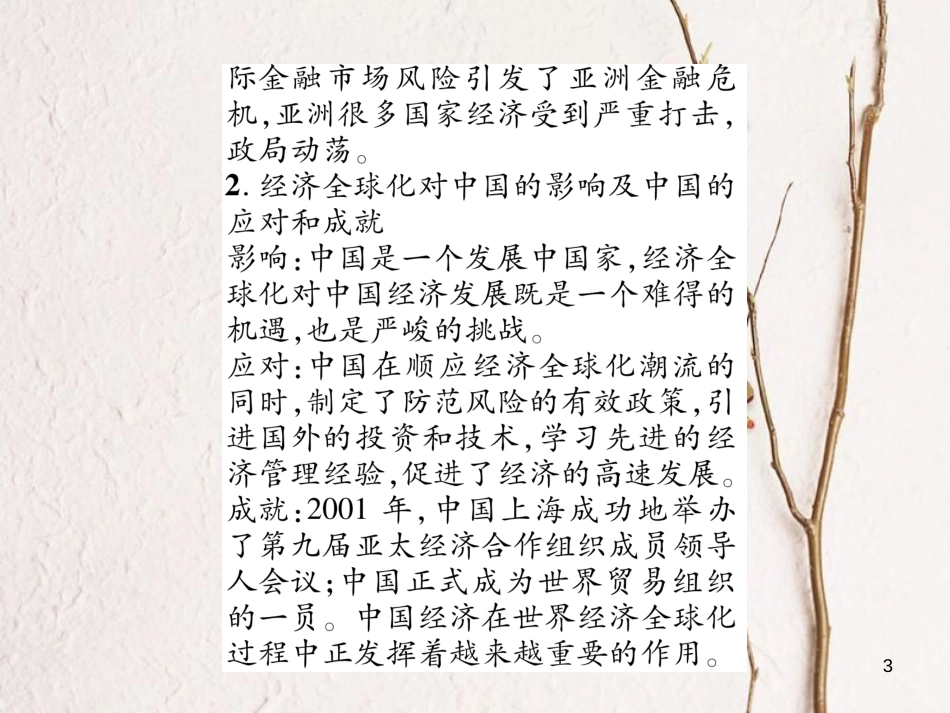 际金融市场风险引发了亚洲金融危
机,亚洲很多国家经济受到严重打击,
政局动荡。
2. 经济全球化对中国的影响及中国的
应对和成就
影响:中国是一个发展中国家,经济全
球化对中国经济发展既是一个难得的
机遇,也是严峻的挑战。
应对:中国在顺应经济全球化潮流的
同时,制定了防范风险的有效政策,引
进国外的投资和技术,学习先进的经
济管理经验,促进了经济的高速发展。
成就:2001 年,中国上海成功地举办
了第九届亚太经济合作组织成员领导
人会议;中国正式成为世界贸易组织
的一员。中国经济在世界经济全球化
过程中正发挥着越来越重要的作用。
3